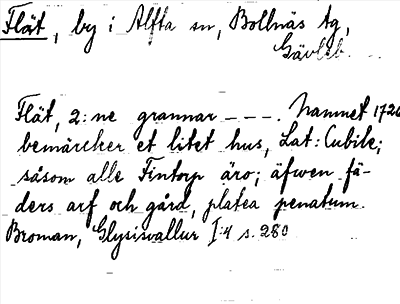 Flät, by i Alfta sn, Bollnäs tg,
Gävleb.
Flät, 2:ne grannar - - -. Namnet 1726
bemärcker et litet hus, Lat: Cubile;
såsom alle Fintorp äro; äfwen fä-
ders arf och gård, platea penatum.
Broman, Glysisvallur I:4 s. 280